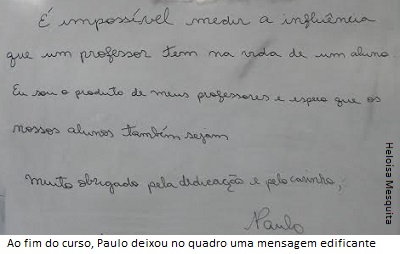 É impossível medir a influência
que um professor tem na vida de um aluno.
Eu sou o produto de meus professores e espero que os
nossos alunos também sejam
Muito obrigado pela dedicação e pelo carinho,
Paulo
Heloisa Mesquita
Ao fim do curso, Paulo deixou no quadro uma mensagem edificante